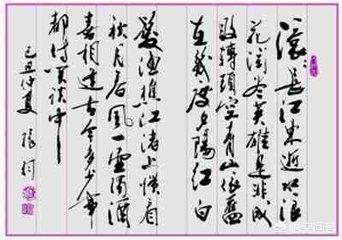 滚〻長江東逝水浪
花淘尽英雄是非成
败转頭空青山依舊
在幾度夕陽红白
髮渔樵江渚上惯看
秋月春风一壶濁酒
喜相逢古今多少事
都付笑谈中
己丑仲夏 张